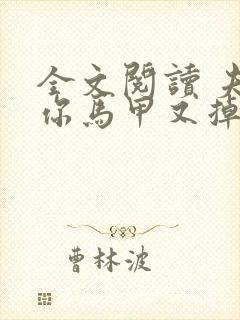 全文閱讀 夫
你馬甲又掉
曹林波